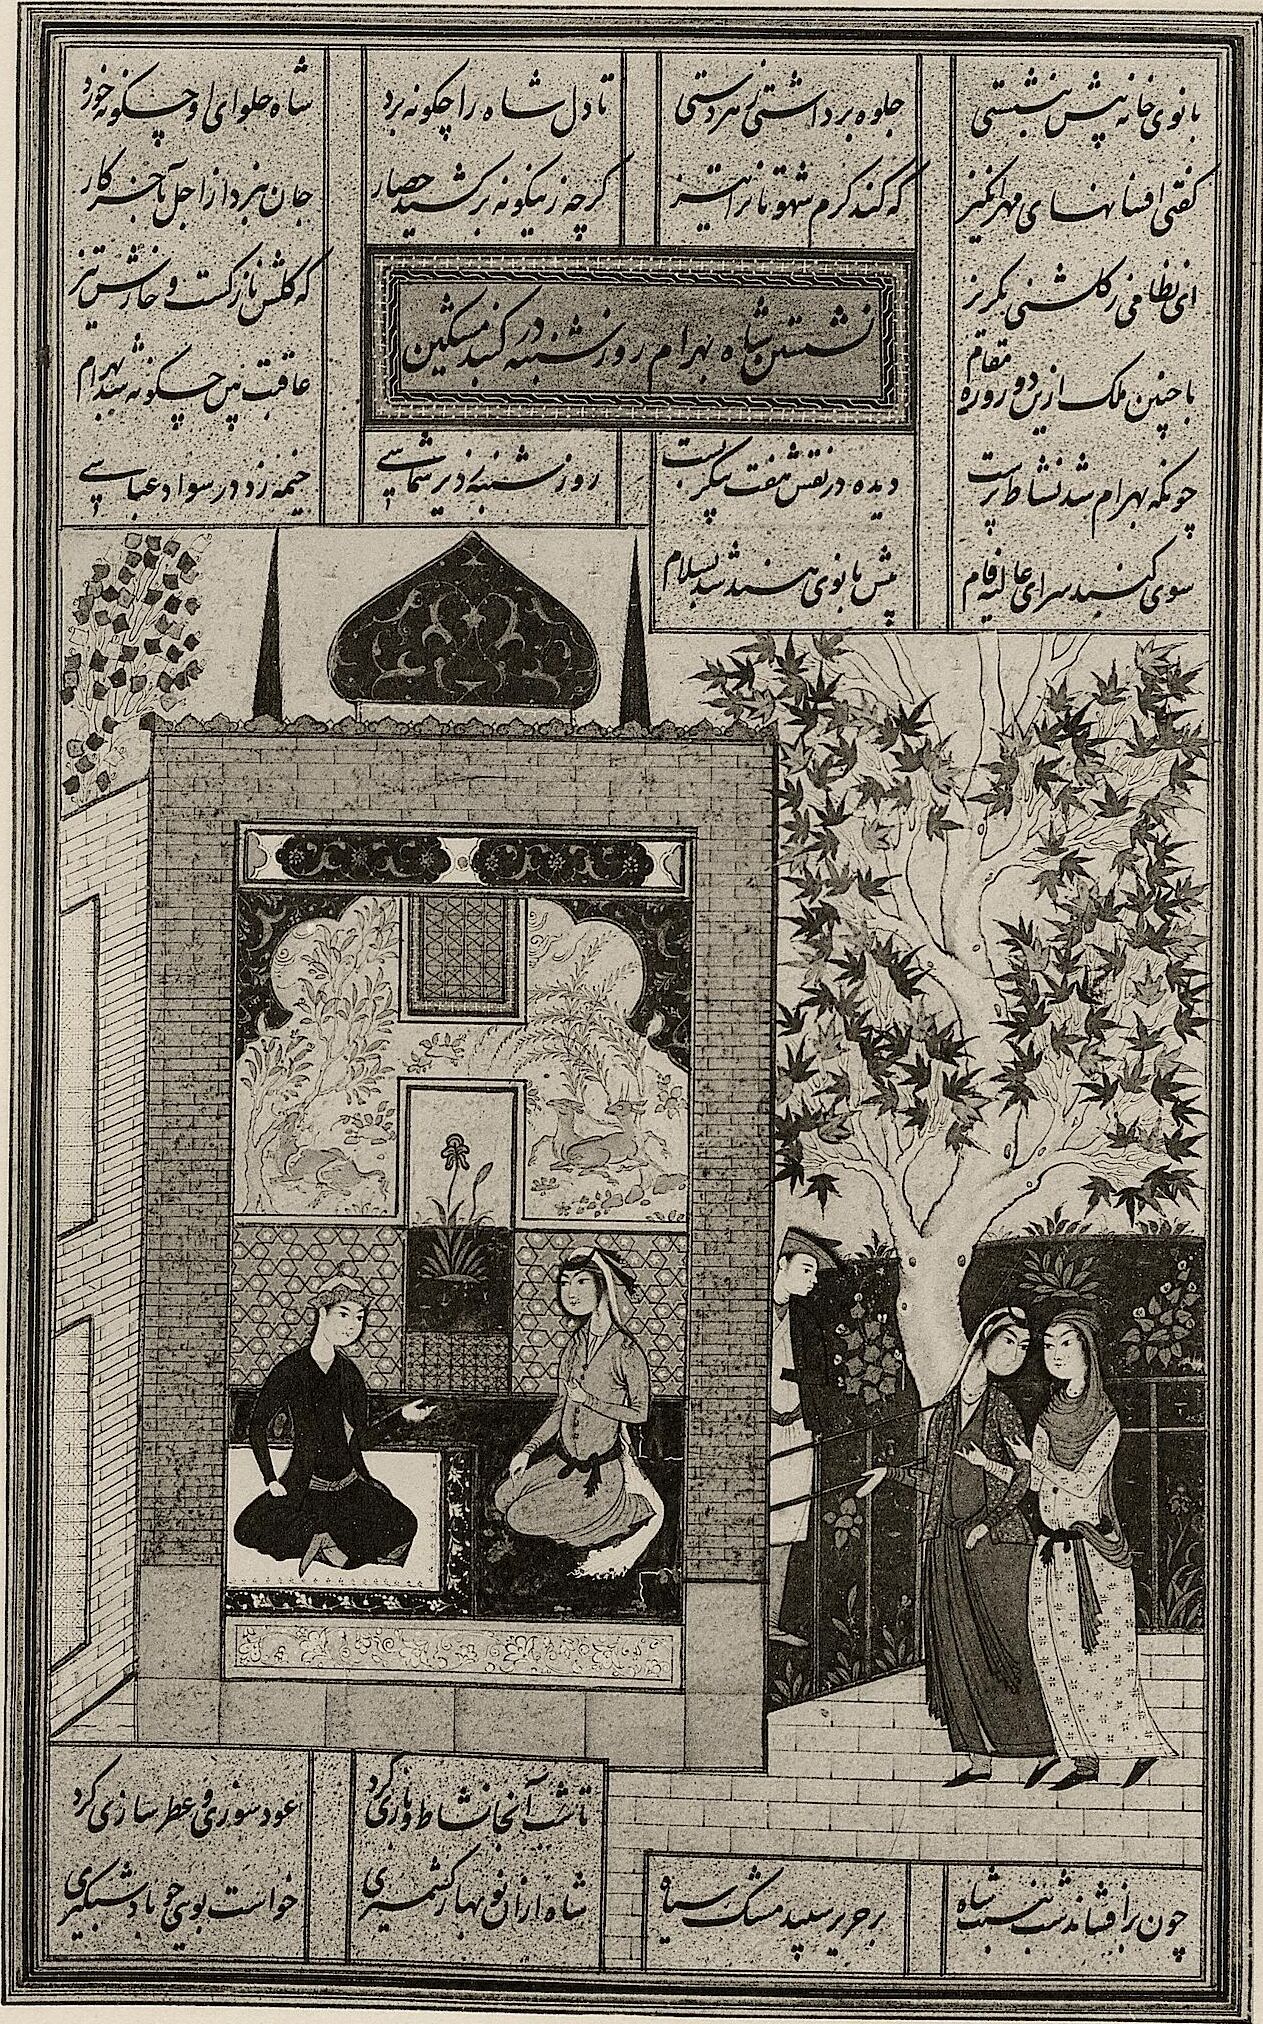 بانوی خانه پیش بنشستی جلوه برداشتی ز هر دستی تا دل شاه را چگونه برد شاه حلوای او چگونه خورد
گفتی افسانهای مهرانگیز که کند گرم شهوتانرا تیز گرچه زینگونه برکشید حصار جان نبرد از اجل بآخر کار
ای نظامی ز گلشنی بگریز که گلش نازکست و خارش تیز
با چنین ملک ازین دو روزه مقام عاقبت بین چگونه شد بهرام
نشستن شاه بهرام روز شنبه در گنبد مشکین
چونکه بهرام شد نشاط پرست دیده در نقش هفت پیکر بست روز شنبه ز دیر شماسی خیمه زد در سواد عباسی
سوی گنبد سرای غالیه فام پیش بانوی هند شد بسلام
تا شب آنجا نشاط و بازی کرد عود سوزی و عطر سازی کرد
چون برافشاند شب بسنت شاه بر حریر سپید مشک سیاه شاه ازان نوبهار کشمیری خواست بویی چو باد شبگیری